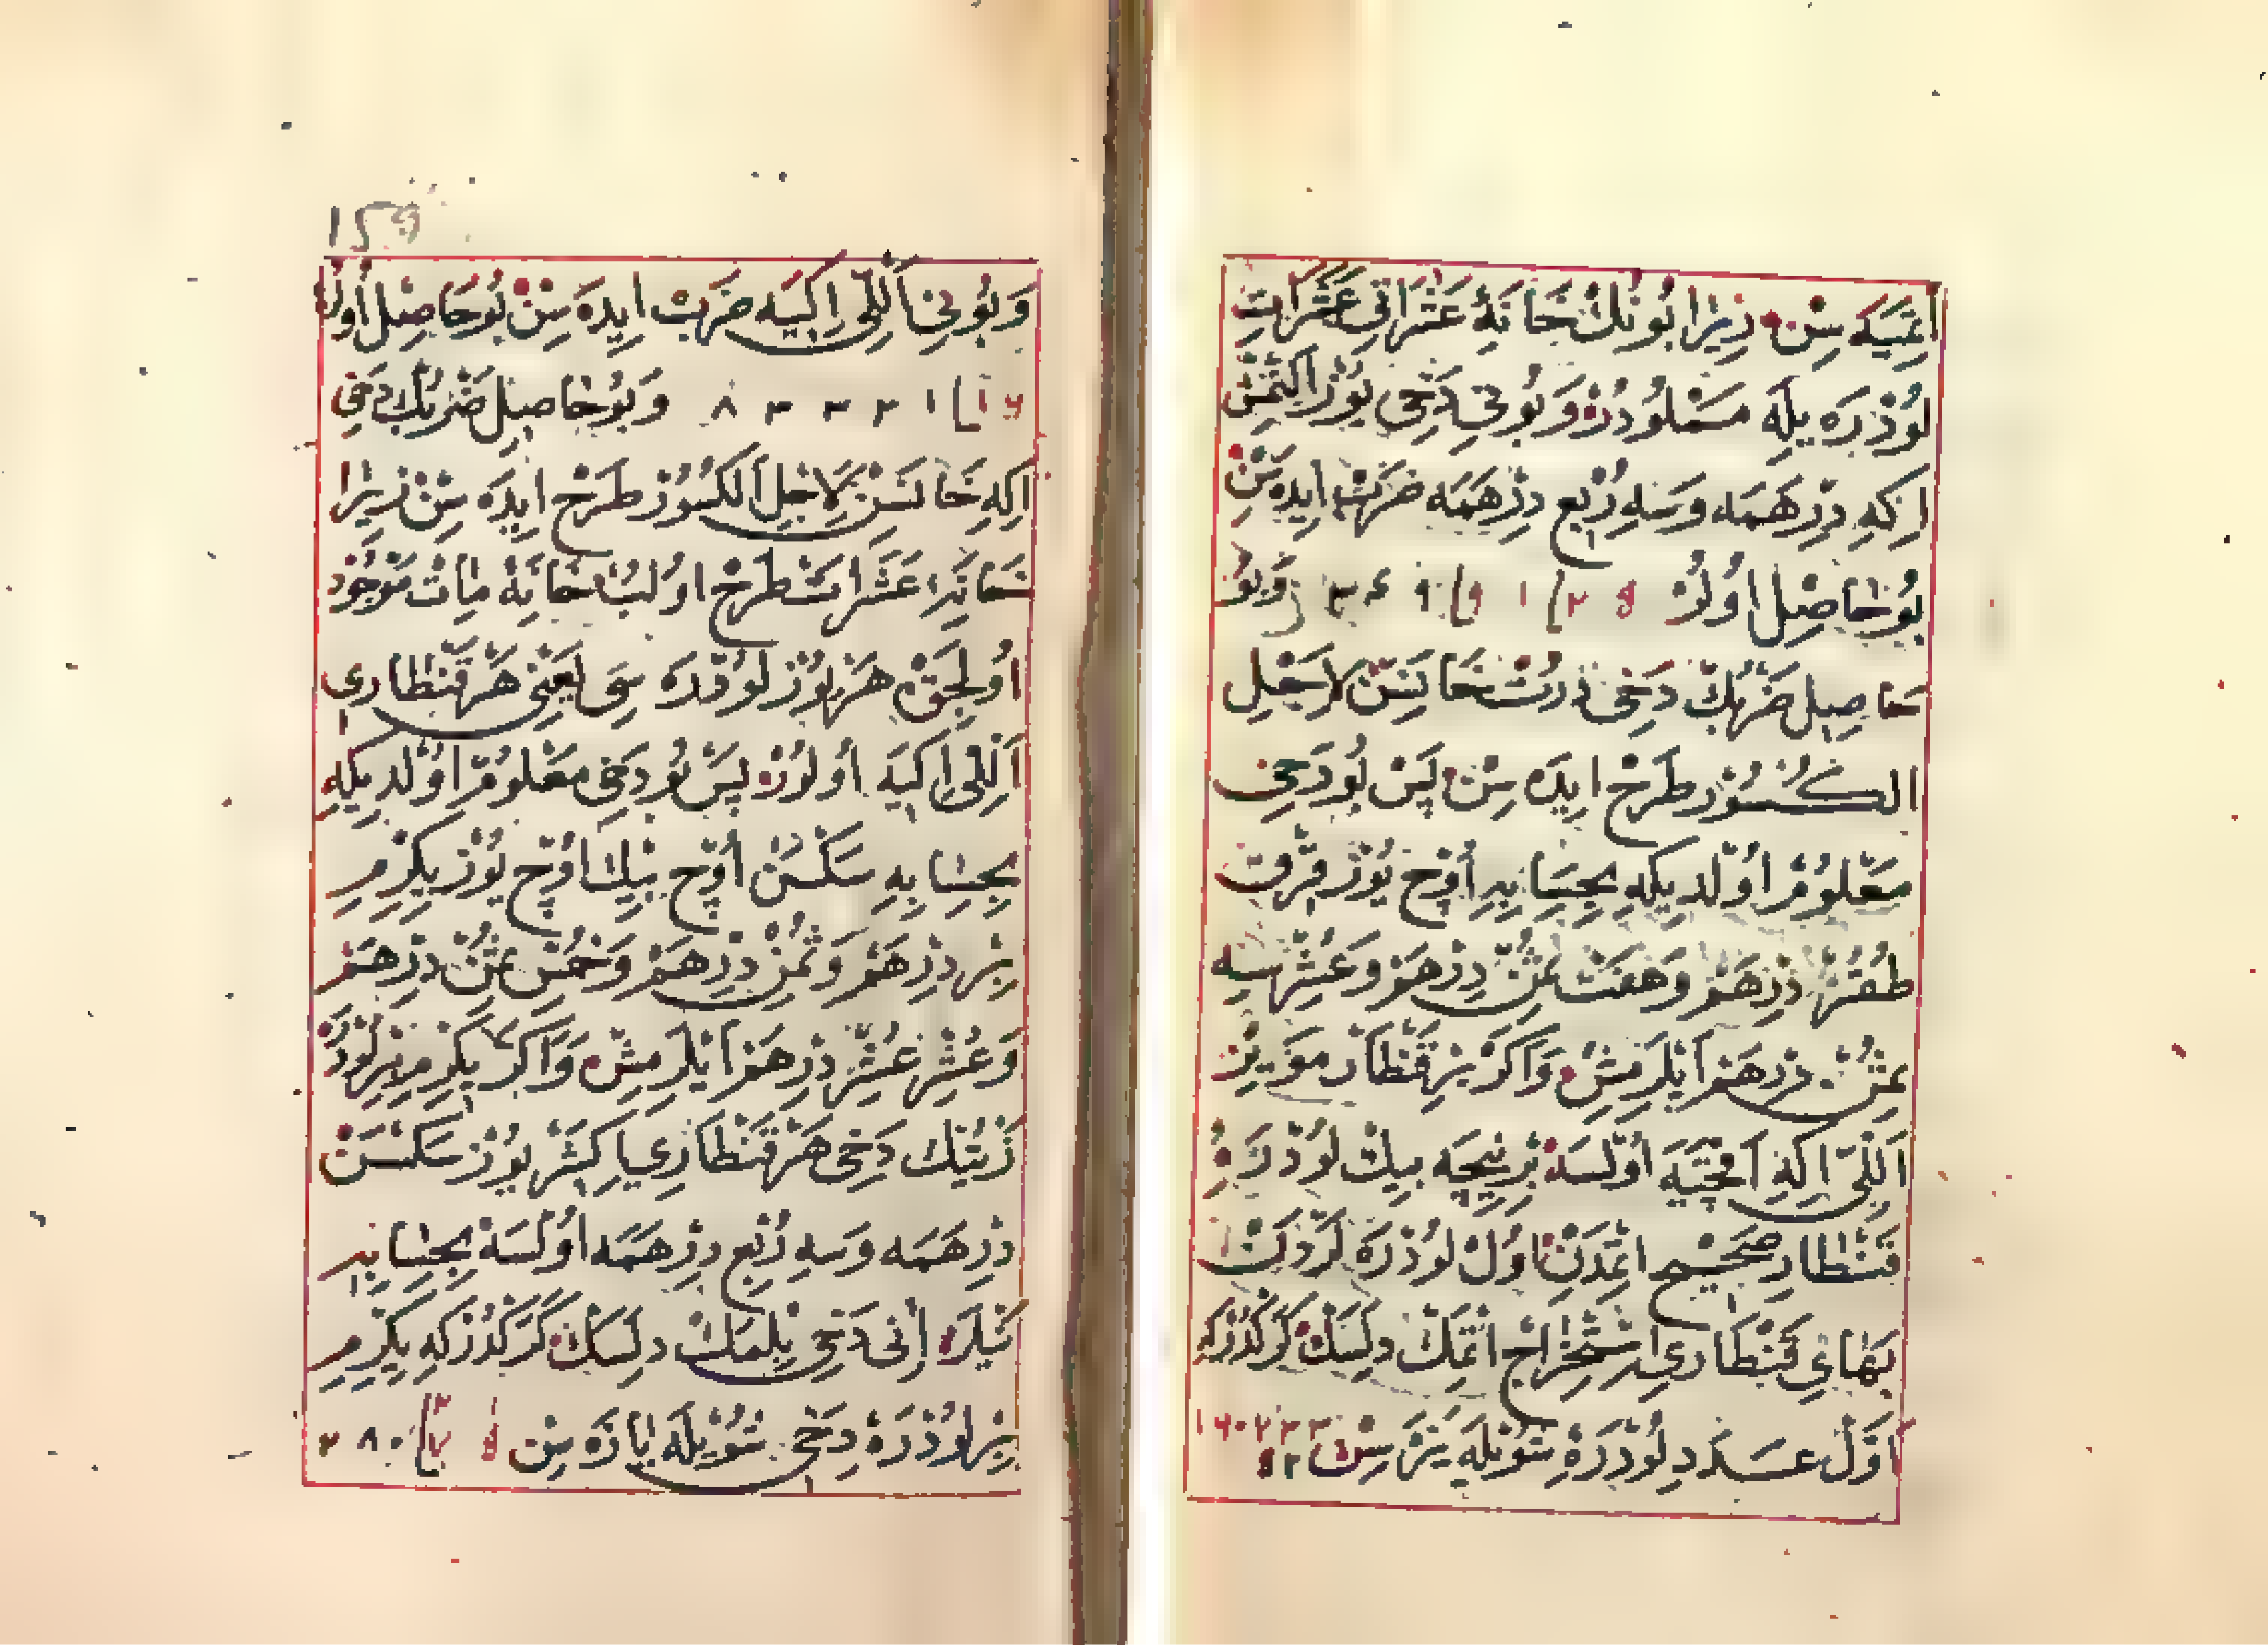 اتمیه سن زیرا بونك خانهٔ عشراتی عشرات
لوذره یله معلودر وبونی دخی یوز التمش
اکه درهمه وسه ربع درهمه ضرب ایده سن
بو حاصل اولور وبو
حاصل ضربك دخی درت خانسن لاجل
الکسور طرح ایده سن پس بو دخی
معلوم اولدیکه بحسابه اوچ یوز قرق
طقز درهم وهفت ثمن درهم وعشر سه
ثمن درهم ایلرمش واکر بر قنطار مویز
اللی اکه اقچیه اولسه برنیچه بیك لوذره
قنطار صحیح اتمدن اول لوذره لردك
بهائی قنطاری استخراج اتمك دلسك کرکدرکه
اول عدد لوذرهٔ شویله یزسن
وبونی اللی اکیه ضرب ایده سن بو حاصل اولر
٨ ٣ ٣ ٢ ١ وبو حاصل ضربك دخی
اکه خانسن لاجل الکسور طرح ایده سن زیرا
خانهٔ عشرات طرح اولب خانهٔ مات موجود
اولجق هر یوز لوذره سی یعنی هر قنطاری
اللی اکیه اولور پس بو دخی معلوم اولدیکه
بحسابه سکسن اوچ بیك اوچ یوز یکرم
بر درهم وثمن درهم وخمس ثمن درهم
وعشر عشر درهم ایلرمش واکر یکرم بر لوذره
زیتك دخی هر قنطاری یا کشر یوز سکسن
درهمه وسه ربع درهمه اولسه بحسابه
نیلر انی دخی بلمك دلسك کرکدرکه یکرم
بر لوذرهٔ دخی شویله یازه سن ٢٨٠